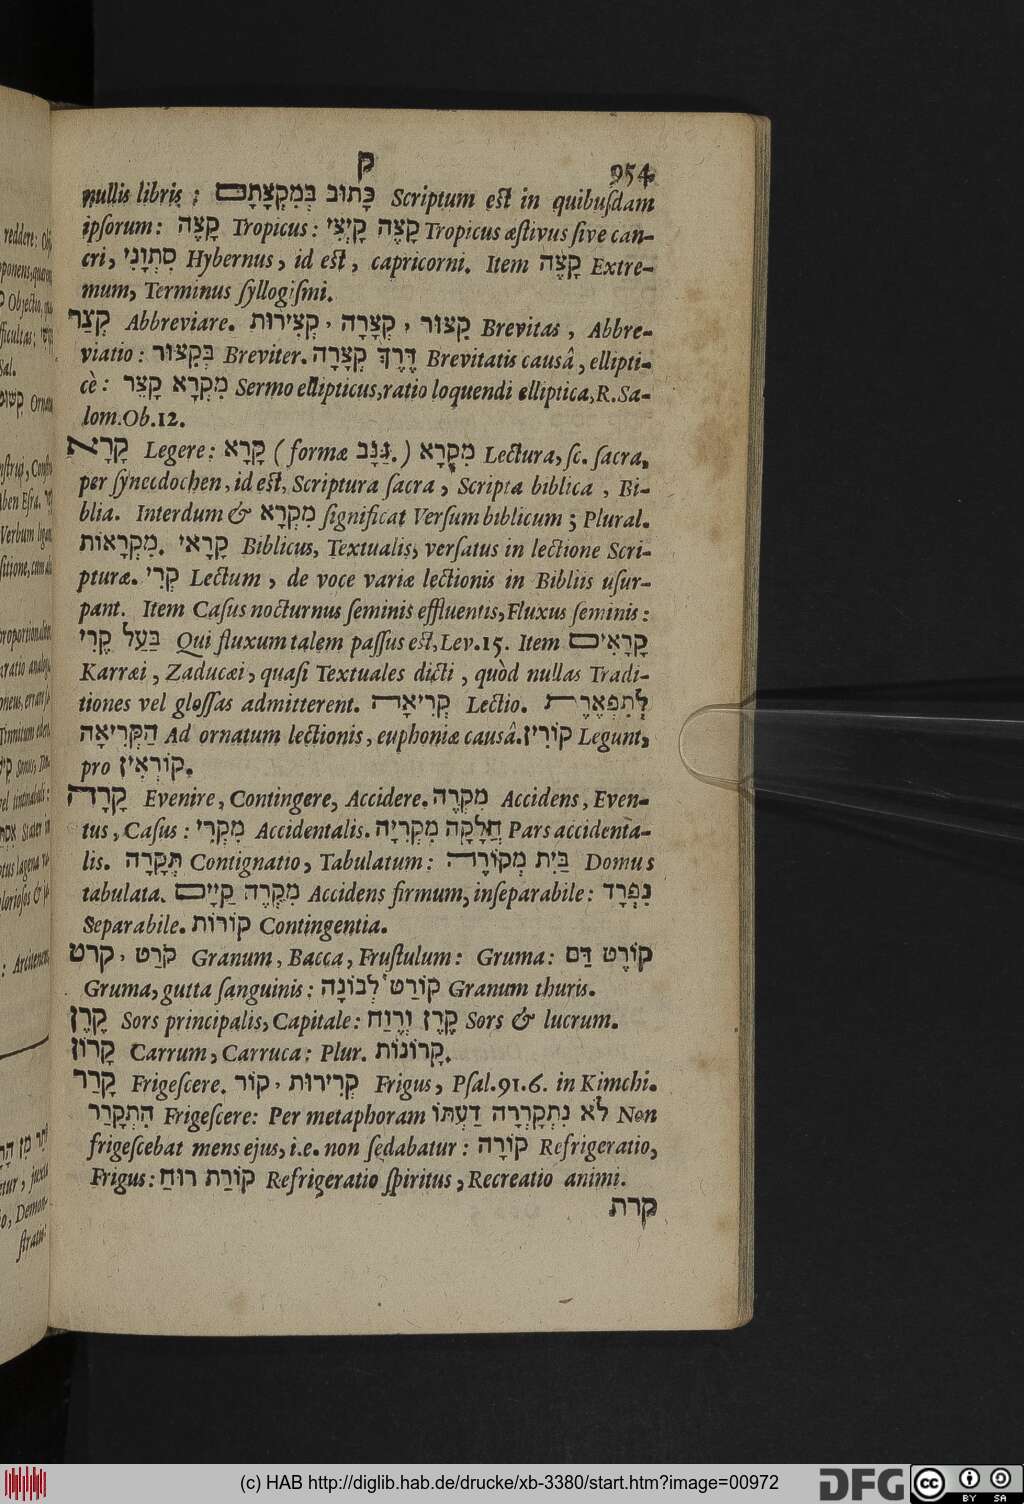 ק
954
nullis libris : כָּתוּב בְּמִקְצָתָם Scriptum est in quibusdam
ipsorum: קָצֶה Tropicus: קָצֶה קַיְצִי Tropicus æstivus sive can-
cri, סִתְוָנִי Hybernus, id est, capricorni. Item קָצֶה Extre-
mum, Terminus syllogismi.
קְצַר Abbreviare. קִצּוּר , קְצָרָה , קְצִירוּת Brevitas, Abbre-
viatio: בְּקִצּוּר Breviter. דֶּרֶךְ קְצָרָה Brevitatis causâ, ellipti-
cè: מִקְרָא קָצֵר Sermo ellipticus, ratio loquendi elliptica, R. Sa-
lom. Ob. 12.
קָרָא Legere: קָרָא (formæ גַּנָּב.) מִקְרָא Lectura, sc. sacra,
per synecdochen, id est, Scriptura sacra, Scripta biblica, Bi-
blia. Interdum & מִקְרָא significat Versum biblicum; Plural.
מִקְרָאוֹת. קָרָאִי Biblicus, Textualis, versatus in lectione Scri-
pturæ. קְרִי Lectum, de voce variæ lectionis in Bibliis usur-
pant. Item Casus nocturnus seminis effluentis, Fluxus seminis:
בַּעַל קֶרִי Qui fluxum talem passus est, Lev. 15. Item קָרָאִים
Karræi, Zaducæi, quasi Textuales dicti, quòd nullas Tradi-
tiones vel glossas admitterent. קְרִיאָה Lectio. לְתִפְאֶרֶת
הַקְּרִיאָה Ad ornatum lectionis, euphoniæ causâ. קוֹרִין Legunt,
pro קוֹרְאִין.
קָרָה Evenire, Contingere, Accidere. מִקְרֶה Accidens, Even-
tus, Casus: מִקְרִי Accidentalis. חֲלָקָה מִקְרִיָה Pars accidenta-
lis. תִּקְרָה Contignatio, Tabulatum: בַּיִת מְקוֹרֶה Domus
tabulata. מִקְרֶה קַיָּים Accidens firmum, inseparabile: נִפְרָד
Separabile. קוֹרוֹת Contingentia.
קרט , קֹרַט Granum, Bacca, Frustulum: Gruma: קוֹרֶט דַּם
Gruma, gutta sanguinis: קוֹרַט לְבוֹנָה Granum thuris.
קֶרֶן Sors principalis, Capitale: קֶרֶן וְרֶוַח Sors & lucrum.
קָרוֹן Carrum, Carruca: Plur. קְרוֹנוֹת.
קָרַר Frigescere. קוֹר , קְרִירוּת Frigus, Psal. 91. 6. in Kimchi.
הִתְקָרַר Frigescere: Per metaphoram לֹא נִתְקָרְרָה דַעְתּוֹ Non
frigescebat mens ejus, i.e. non sedabatur: קוֹרָה Refrigeratio,
Frigus: קוֹרַת רוּחַ Refrigeratio spiritus, Recreatio animi.
קרת
(c) HAB http://diglib.hab.de/drucke/xb-3380/start.htm?image=00972
DFG
cc BY SA